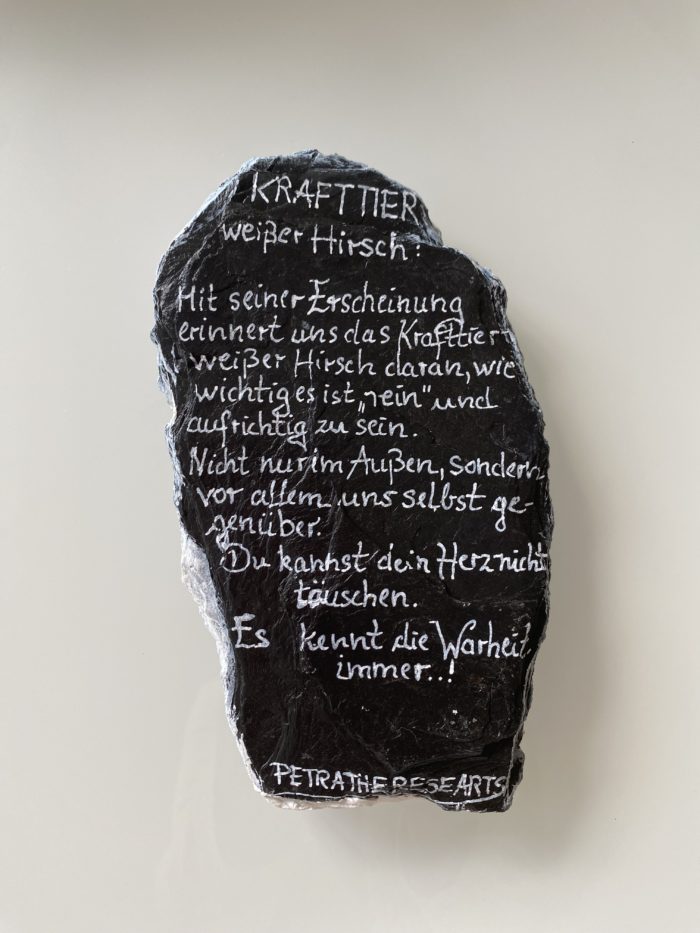 KRAFTTIER
weißer Hirsch:
Mit seiner Erscheinung
erinnert uns das Krafttier
weißer Hirsch daran, wie
wichtig es ist „rein“ und
aufrichtig zu sein.
Nicht nur im Außen, sondern
vor allem uns selbst ge-
genüber.
Du kannst dein Herz nicht
täuschen.
Es kennt die Warheit
immer..!
PETRATHERESEARTS